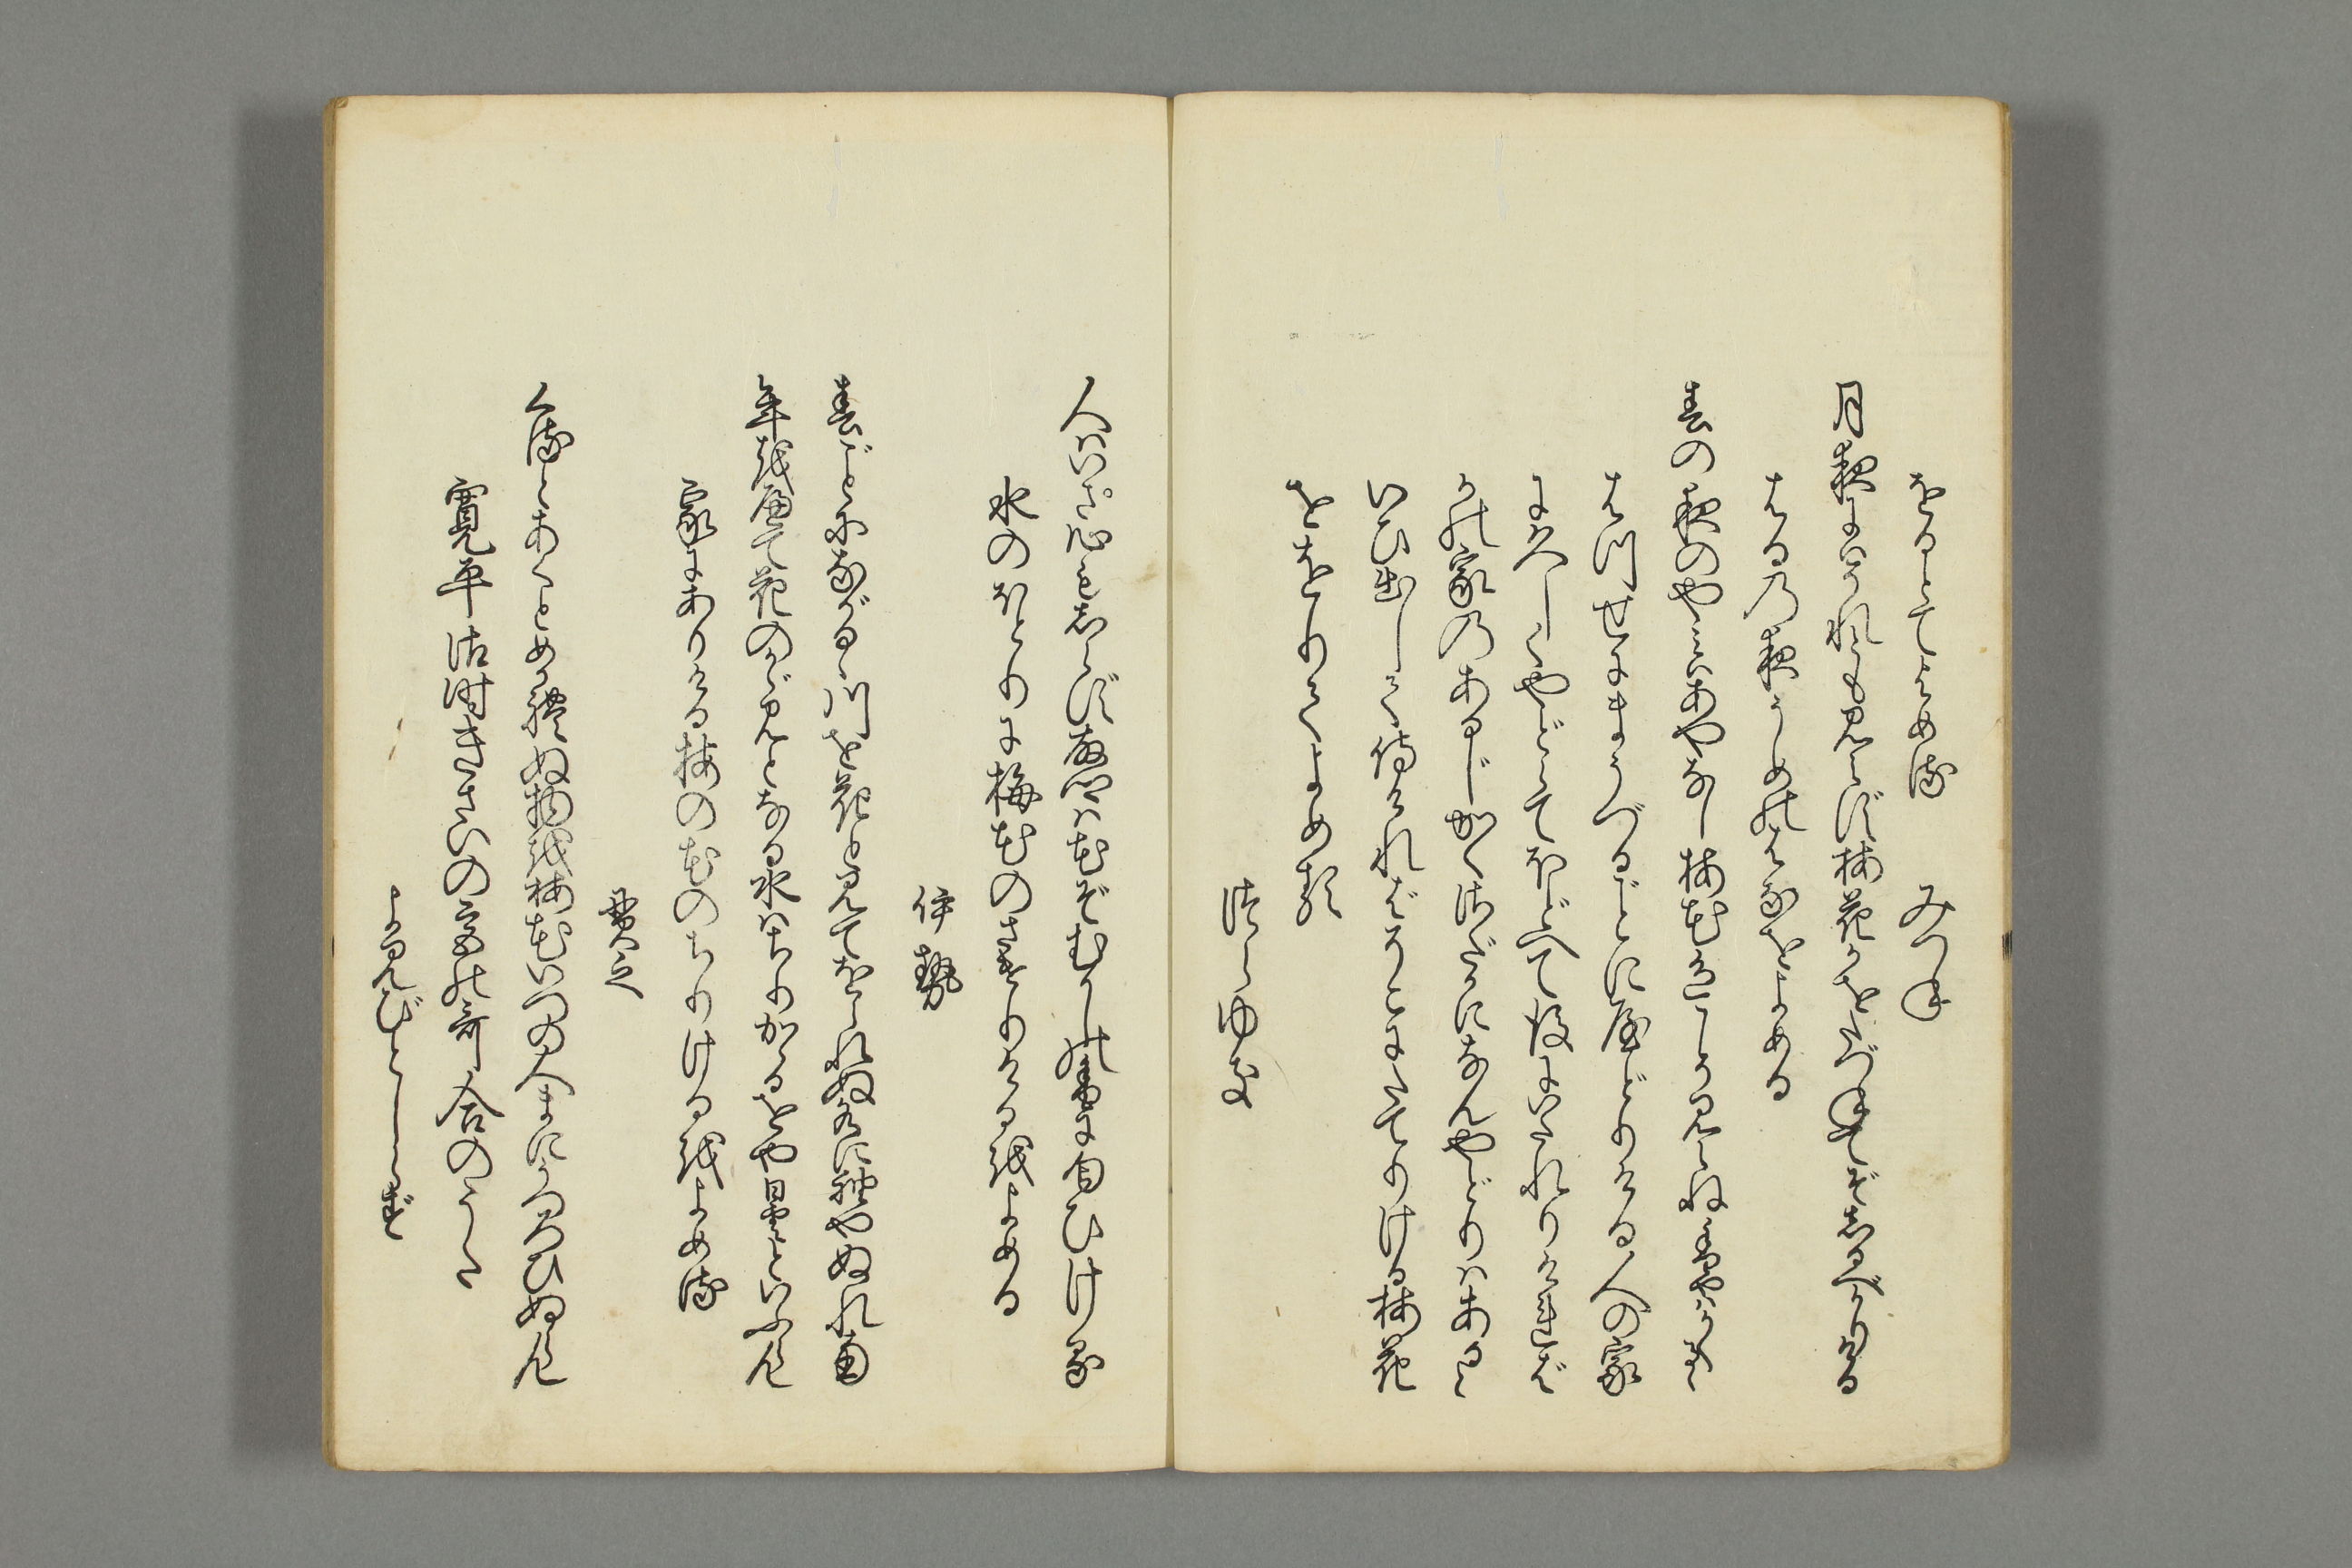 をるとてよめる　みつね
月夜にはそれとも見えず梅花かをたづねてぞしるべかりける
はるの夜うめのはなをよめる
春の夜のやみはあやなし梅花色こそ見えね香やはかくるゝ
はつせにまうづるごとに屋どりける人の家
に久しくやどらでほどへて後にいたれりければ
かの家のあるじかくさだかになんやどりはあると
いひ出して侍ければそこにたてりける梅花
ををりてよめる
つらゆき
人はいさ心もしらず故郷は花ぞむかしの香に匂ひける
水のほとりに梅花のさけりけるをよめる
伊勢
春ごとにながるゝ川を花と見てをられぬ水に袖やぬれ南
年を歴て花のかゞみとなる水はちりかゝるをや曇といふらん
家にありける梅の花のちりけるをよめる
貫之
くるとあくとめかれぬ物を梅花いつの人まにうつろひぬらん
寛平御時きさいの宮の哥合のうた
よみびとしらず